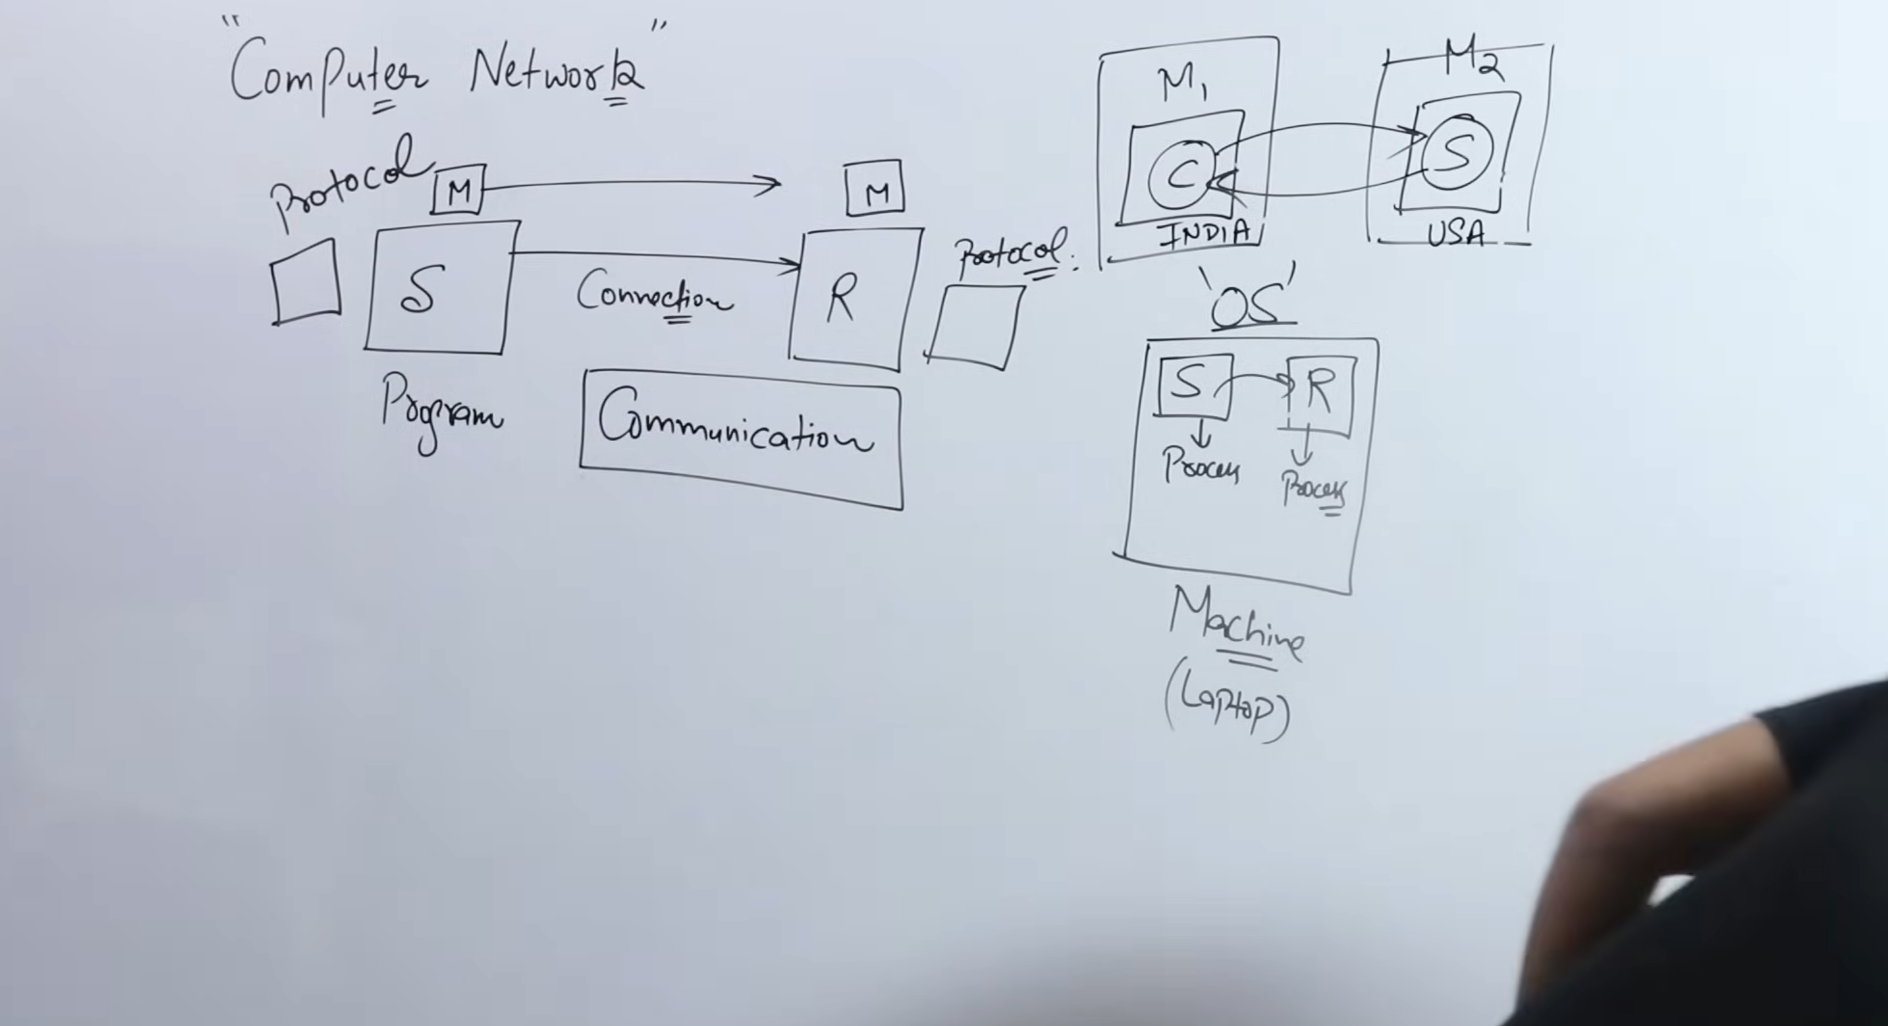 "Computer Network"
Protocol
M
M
S
Connection
R
Protocol:
Program
Communication
M1
C
INDIA
M2
S
USA
'OS'
S
R
Process
Process
Machine
(Laptop)